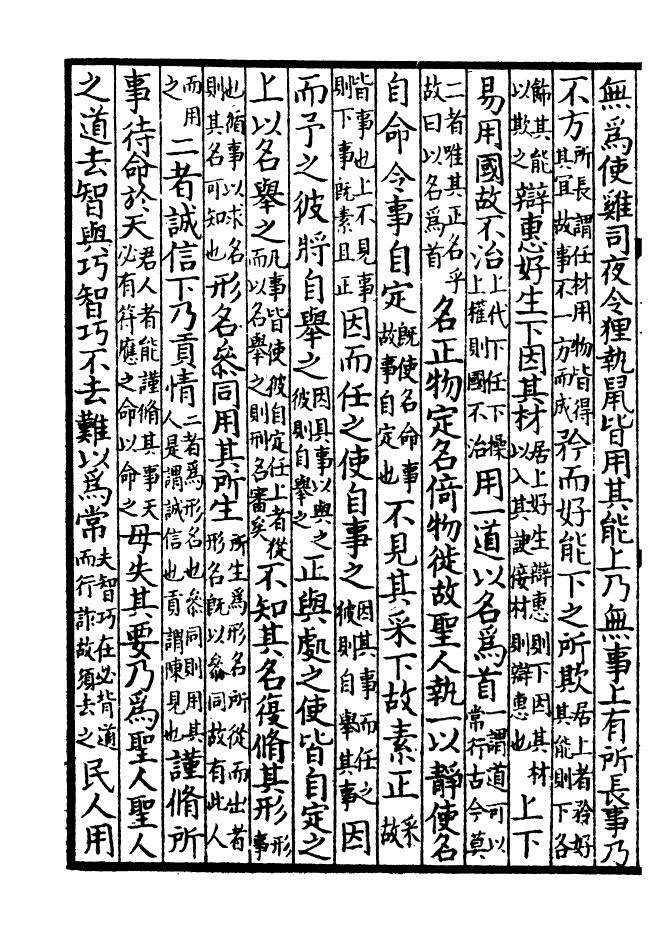 無爲使雞司夜令狸執鼠皆用其能上乃無事上有所長事乃
不方所長謂任材用物皆得其宜故事不一方而成矜而好能下之所欺居上者矜好其能則下各
飾其能以欺之辯惠好生下因其材居上好生辯惠則下因其材以入其諛佞材則辯惠也上下
易用國故不治上代下任下操上權則國不治用一道以名爲首一謂道可以常行古今莫
二者唯其正名乎故曰以名爲首名正物定名倚物徙故聖人執一以靜使名
自命令事自定既使名命事故事自定也不見其采下故素正采故
皆事也上不見事則下事既素且正因而任之使自事之因其事而任之彼則自舉其事因
而予之彼將自舉之因其事以與之彼則自舉之正與處之使皆自定之
上以名舉之凡事皆使彼自定任上者從而以名舉之則刑名審矣不知其名復脩其形形事
也循事以求名則其名可知也形名參同用其所生所生爲形名所從而出者形名既以參同故有此人
而用之二者誠信下乃貢情二者爲形名也參同則用其人是謂誠信也貢謂陳見也謹脩所
事待命於天君人者能謹脩其事天必有符應之命以命之毋失其要乃爲聖人聖人
之道去智與巧智巧不去難以爲常夫智巧在必背道而行詐故須去之民人用